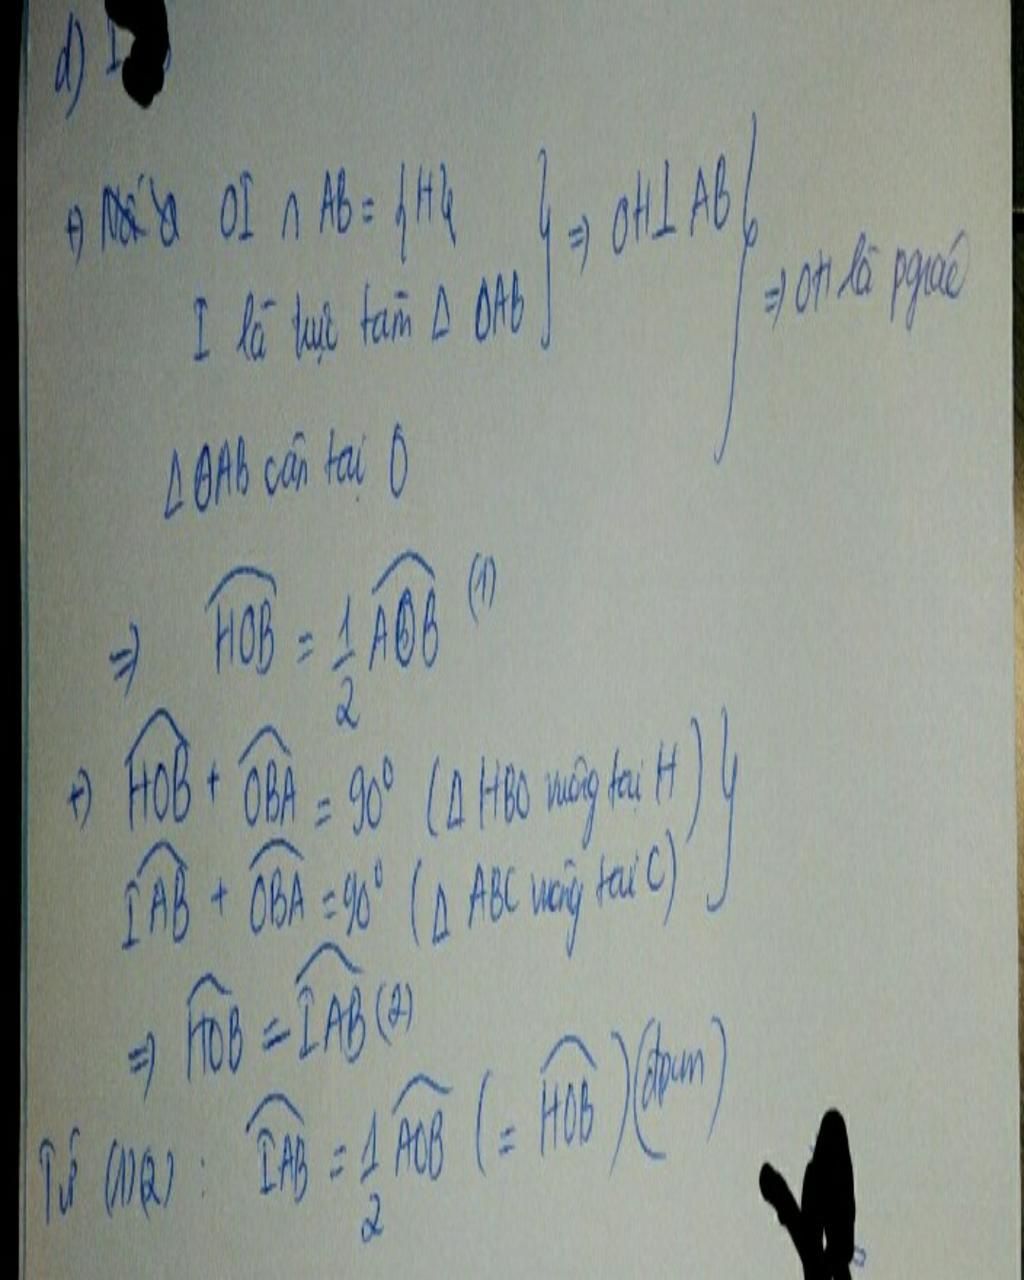 d) I
+) OI ∩ AB = {H}
I là trực tâm Δ OAB } => OH ⊥ AB
Δ OAB cân tại O } => OH là pgiác
=> \widehat{HOB} = \frac{1}{2} \widehat{AOB} (1)
+) \widehat{HOB} + \widehat{OBA} = 90° (Δ HBO vuông tại H) }
\widehat{IAB} + \widehat{OBA} = 90° (Δ ABC vuông tại C)
=> \widehat{HOB} = \widehat{IAB} (2)
Từ (1)(2) : \widehat{IAB} = \frac{1}{2} \widehat{AOB} (= \widehat{HOB}) (đpcm)